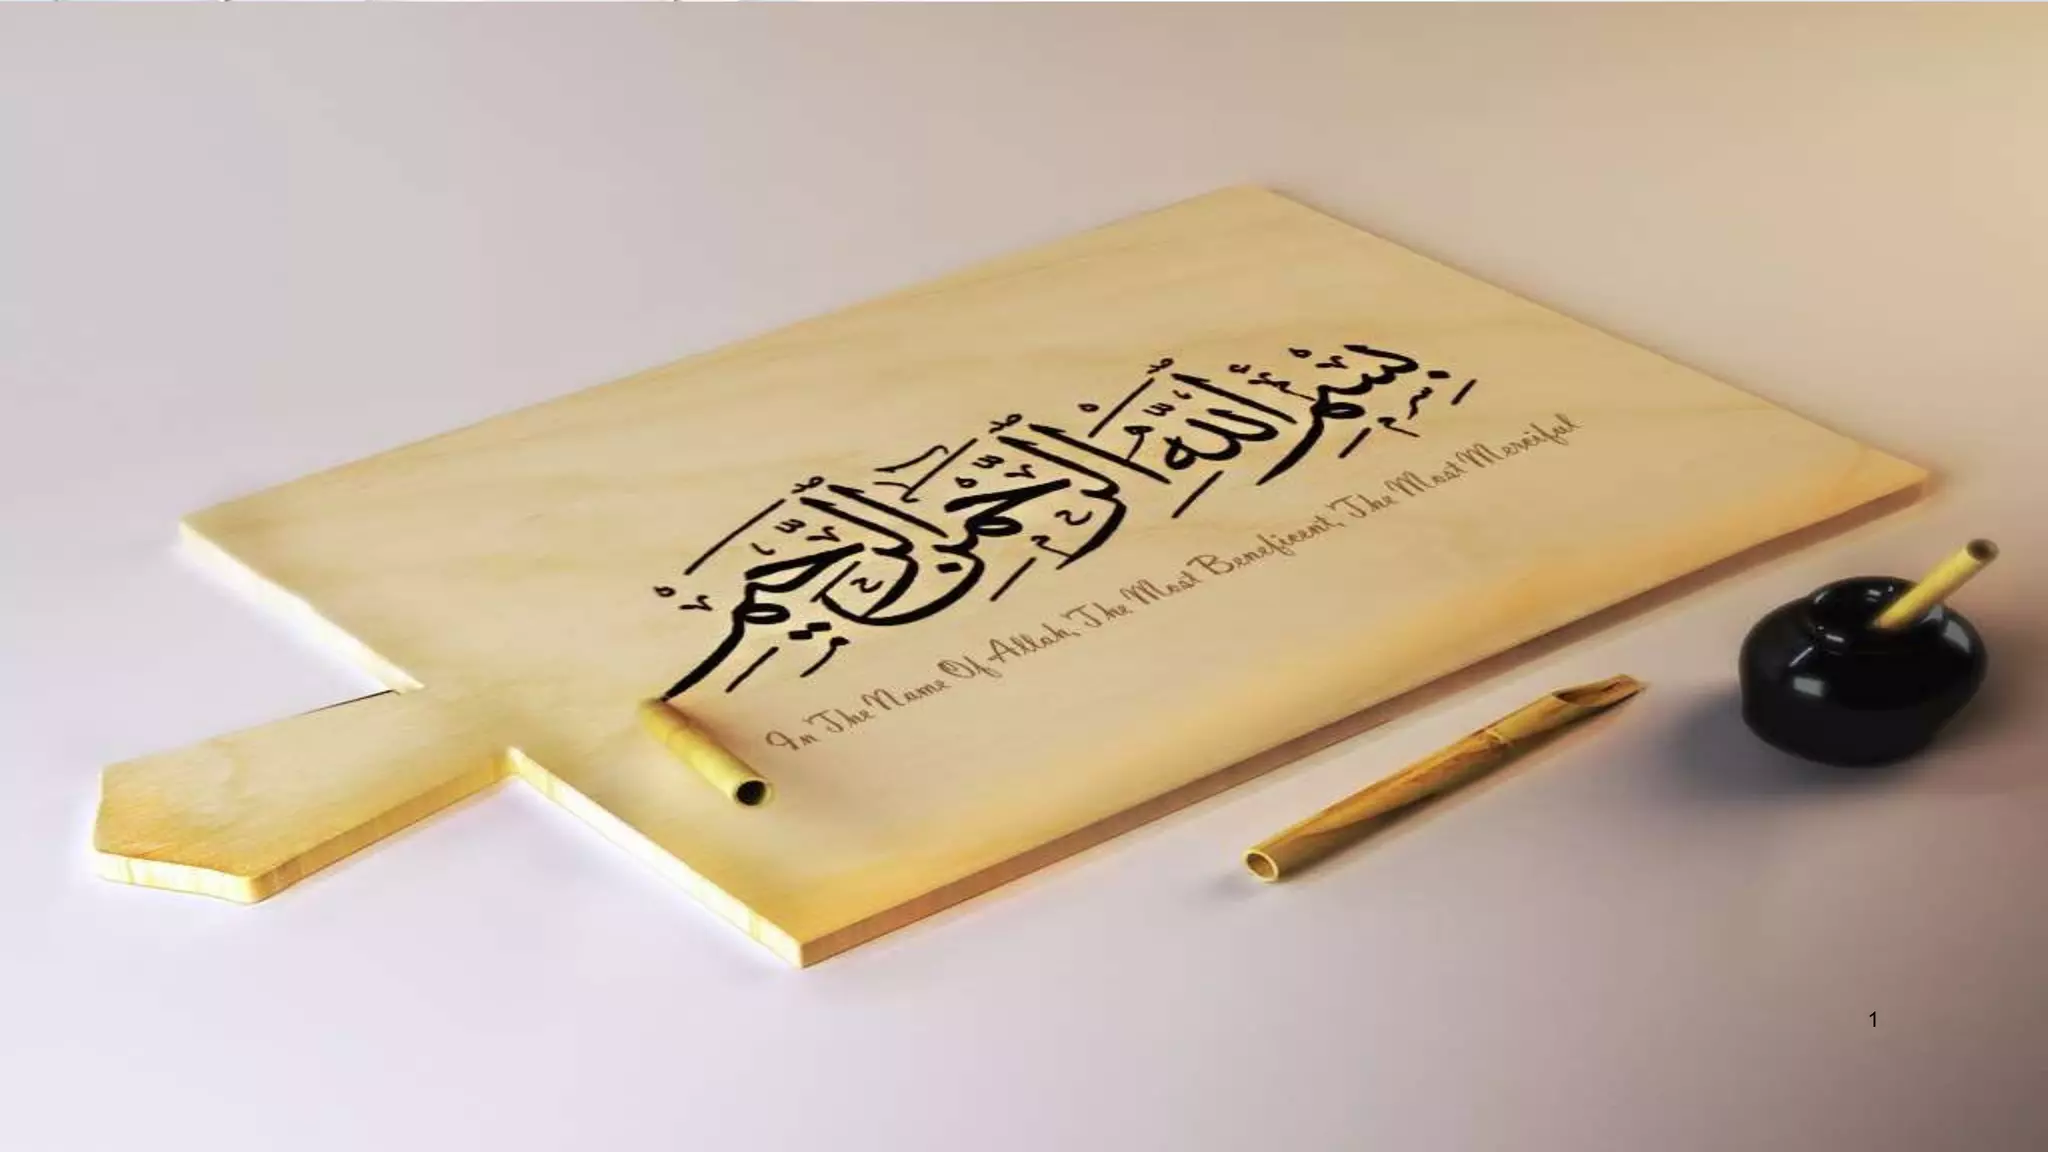 بِسْمِ اللَّهِ الرَّحْمَٰنِ الرَّحِيمِ
In The Name Of Allah, The Most Beneficent, The Most Merciful
1